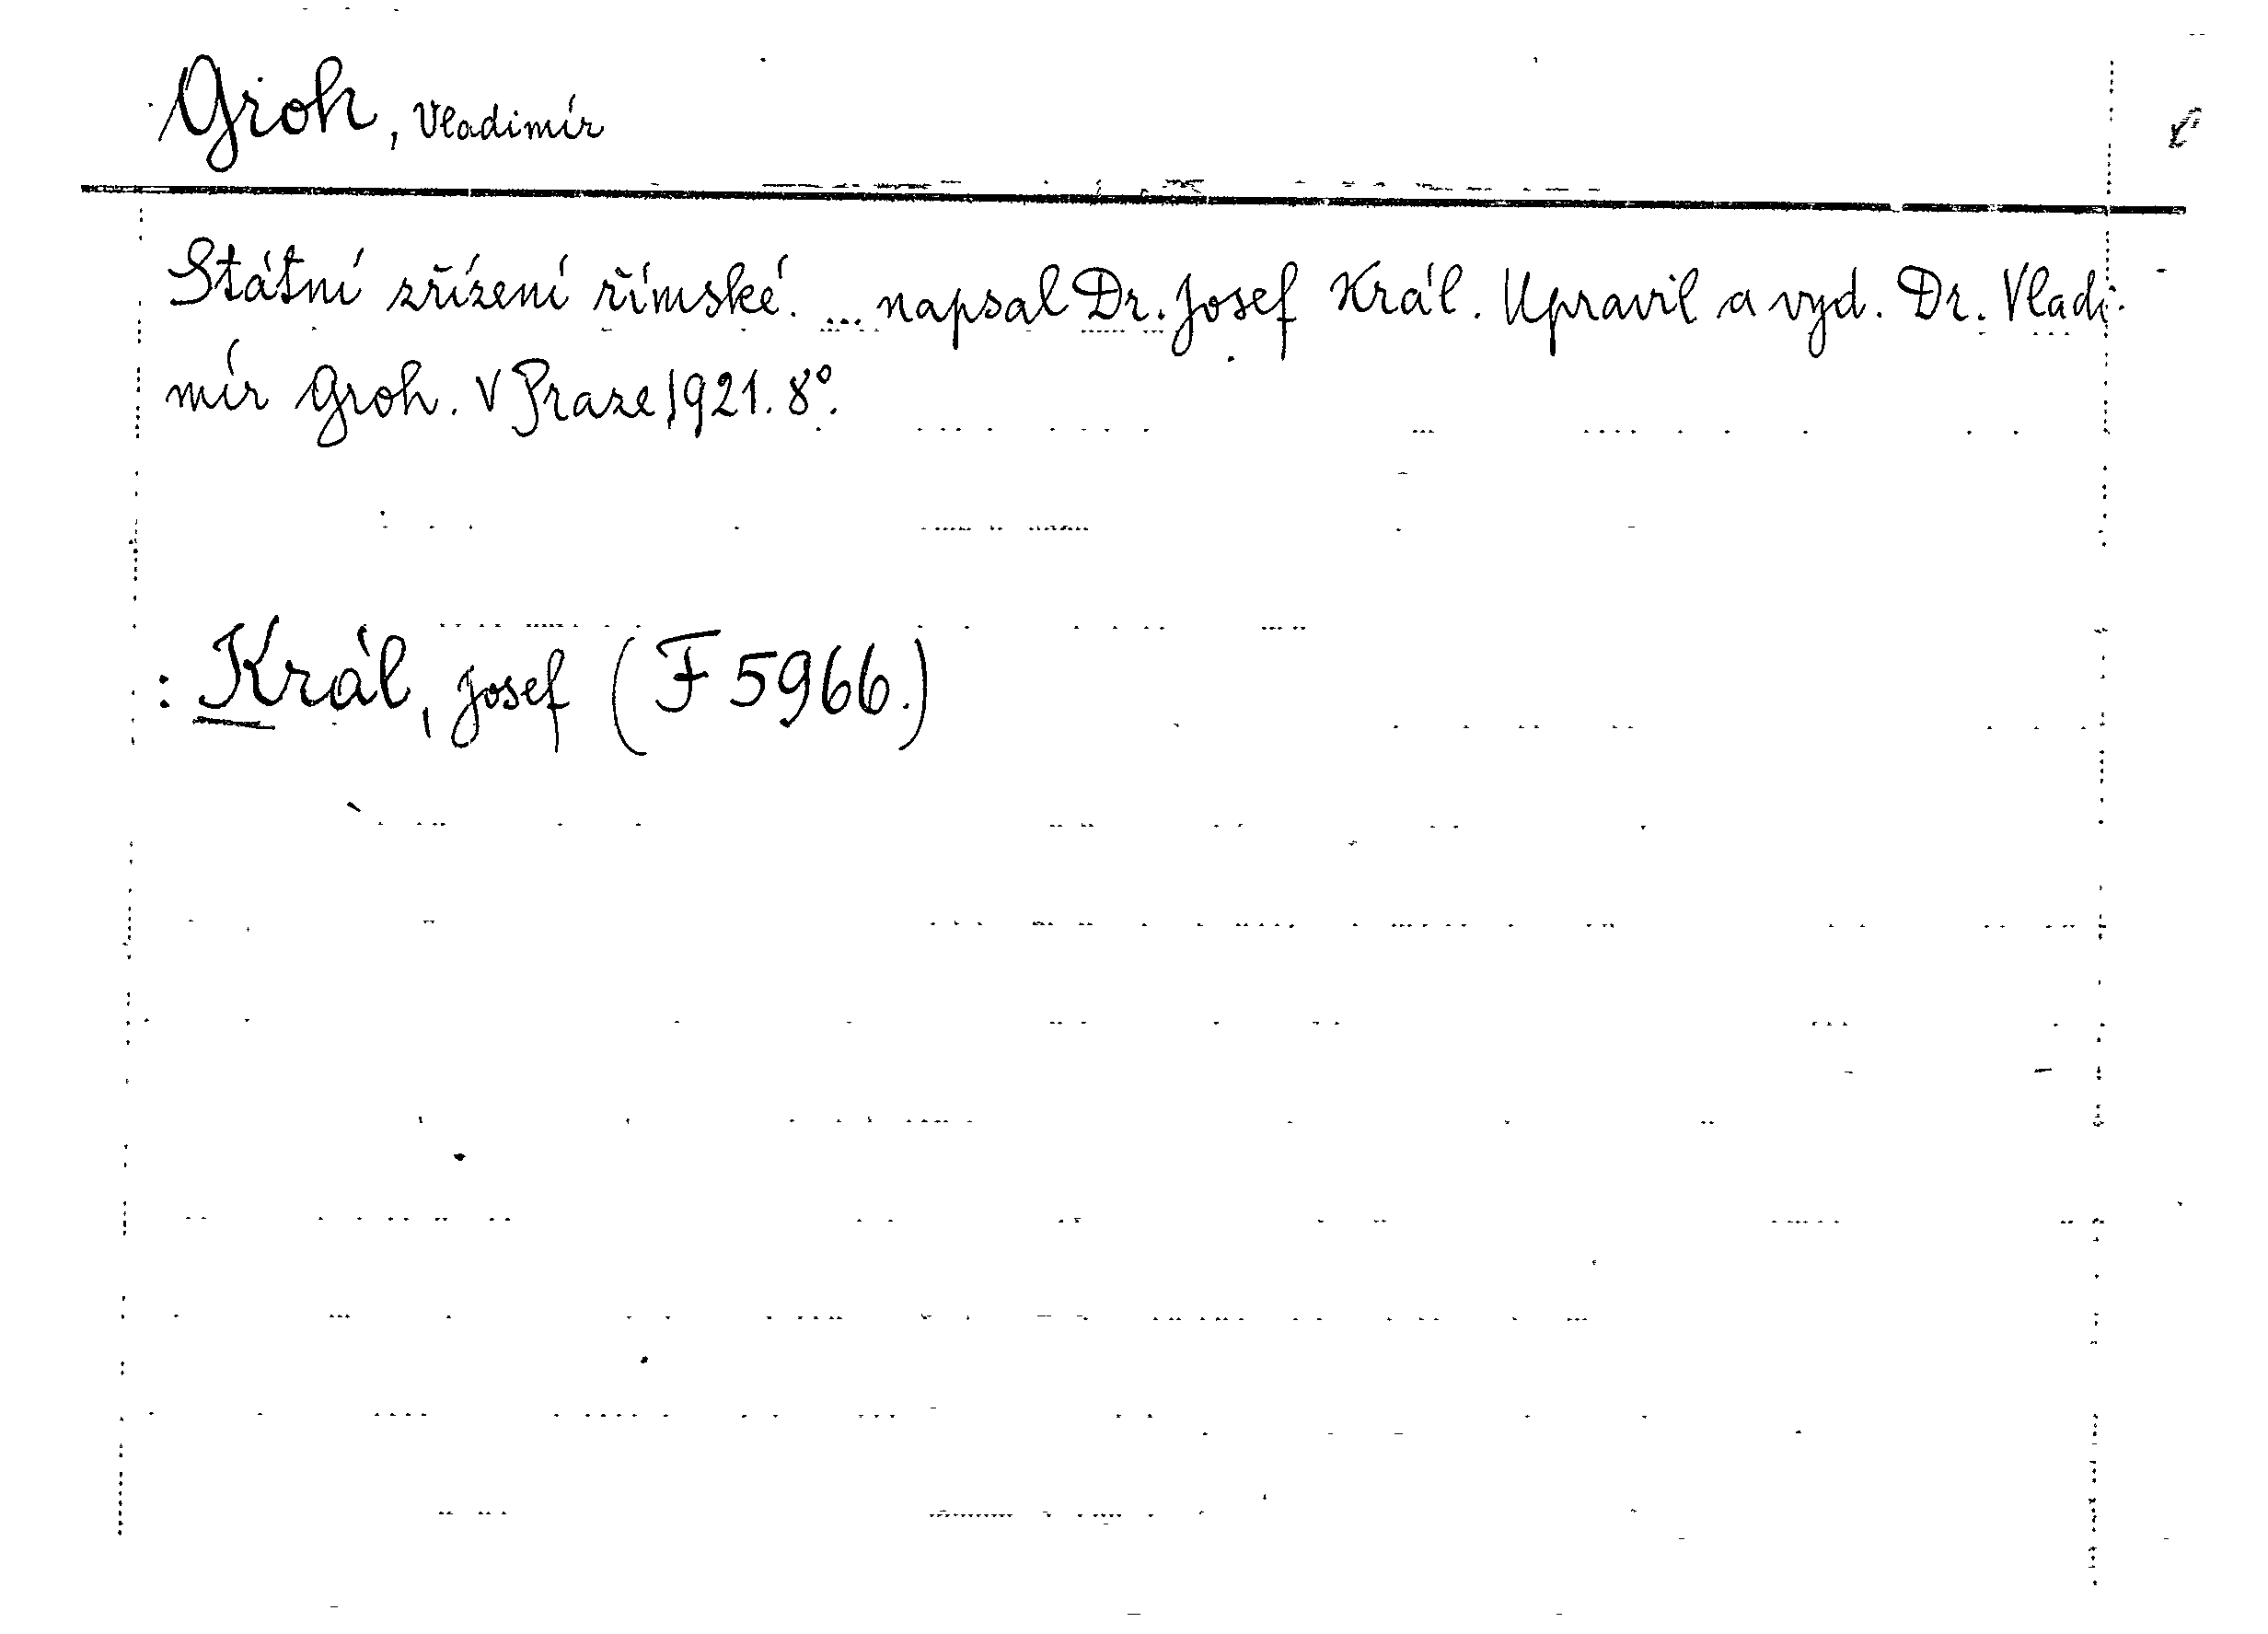 Groh, Vladimír
Státní zřízení římské. ... napsal Dr. Josef Král. Upravil a vyd. Dr. Vladi-
mír Groh. V Praze 1921. 8°.
: Král, Josef (F 5966.)